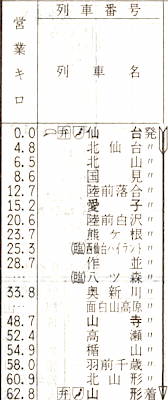 列車番号
営業キロ
列車名
0.0 弁 仙台発
4.8 北仙台〃
6.5 北山〃
8.6 国見〃
12.7 陸前落合〃
15.2 愛子〃
20.6 陸前白沢〃
23.7 熊ケ根〃
25.3 (臨) 西仙台ハイランド〃
28.7 作並〃
(臨) 八ツ森〃
33.8 奥新川〃
面白山高原〃
48.7 山寺〃
52.4 高瀬〃
54.9 楯山〃
58.0 羽前千歳〃
60.9 北山形〃
62.8 弁 山形着